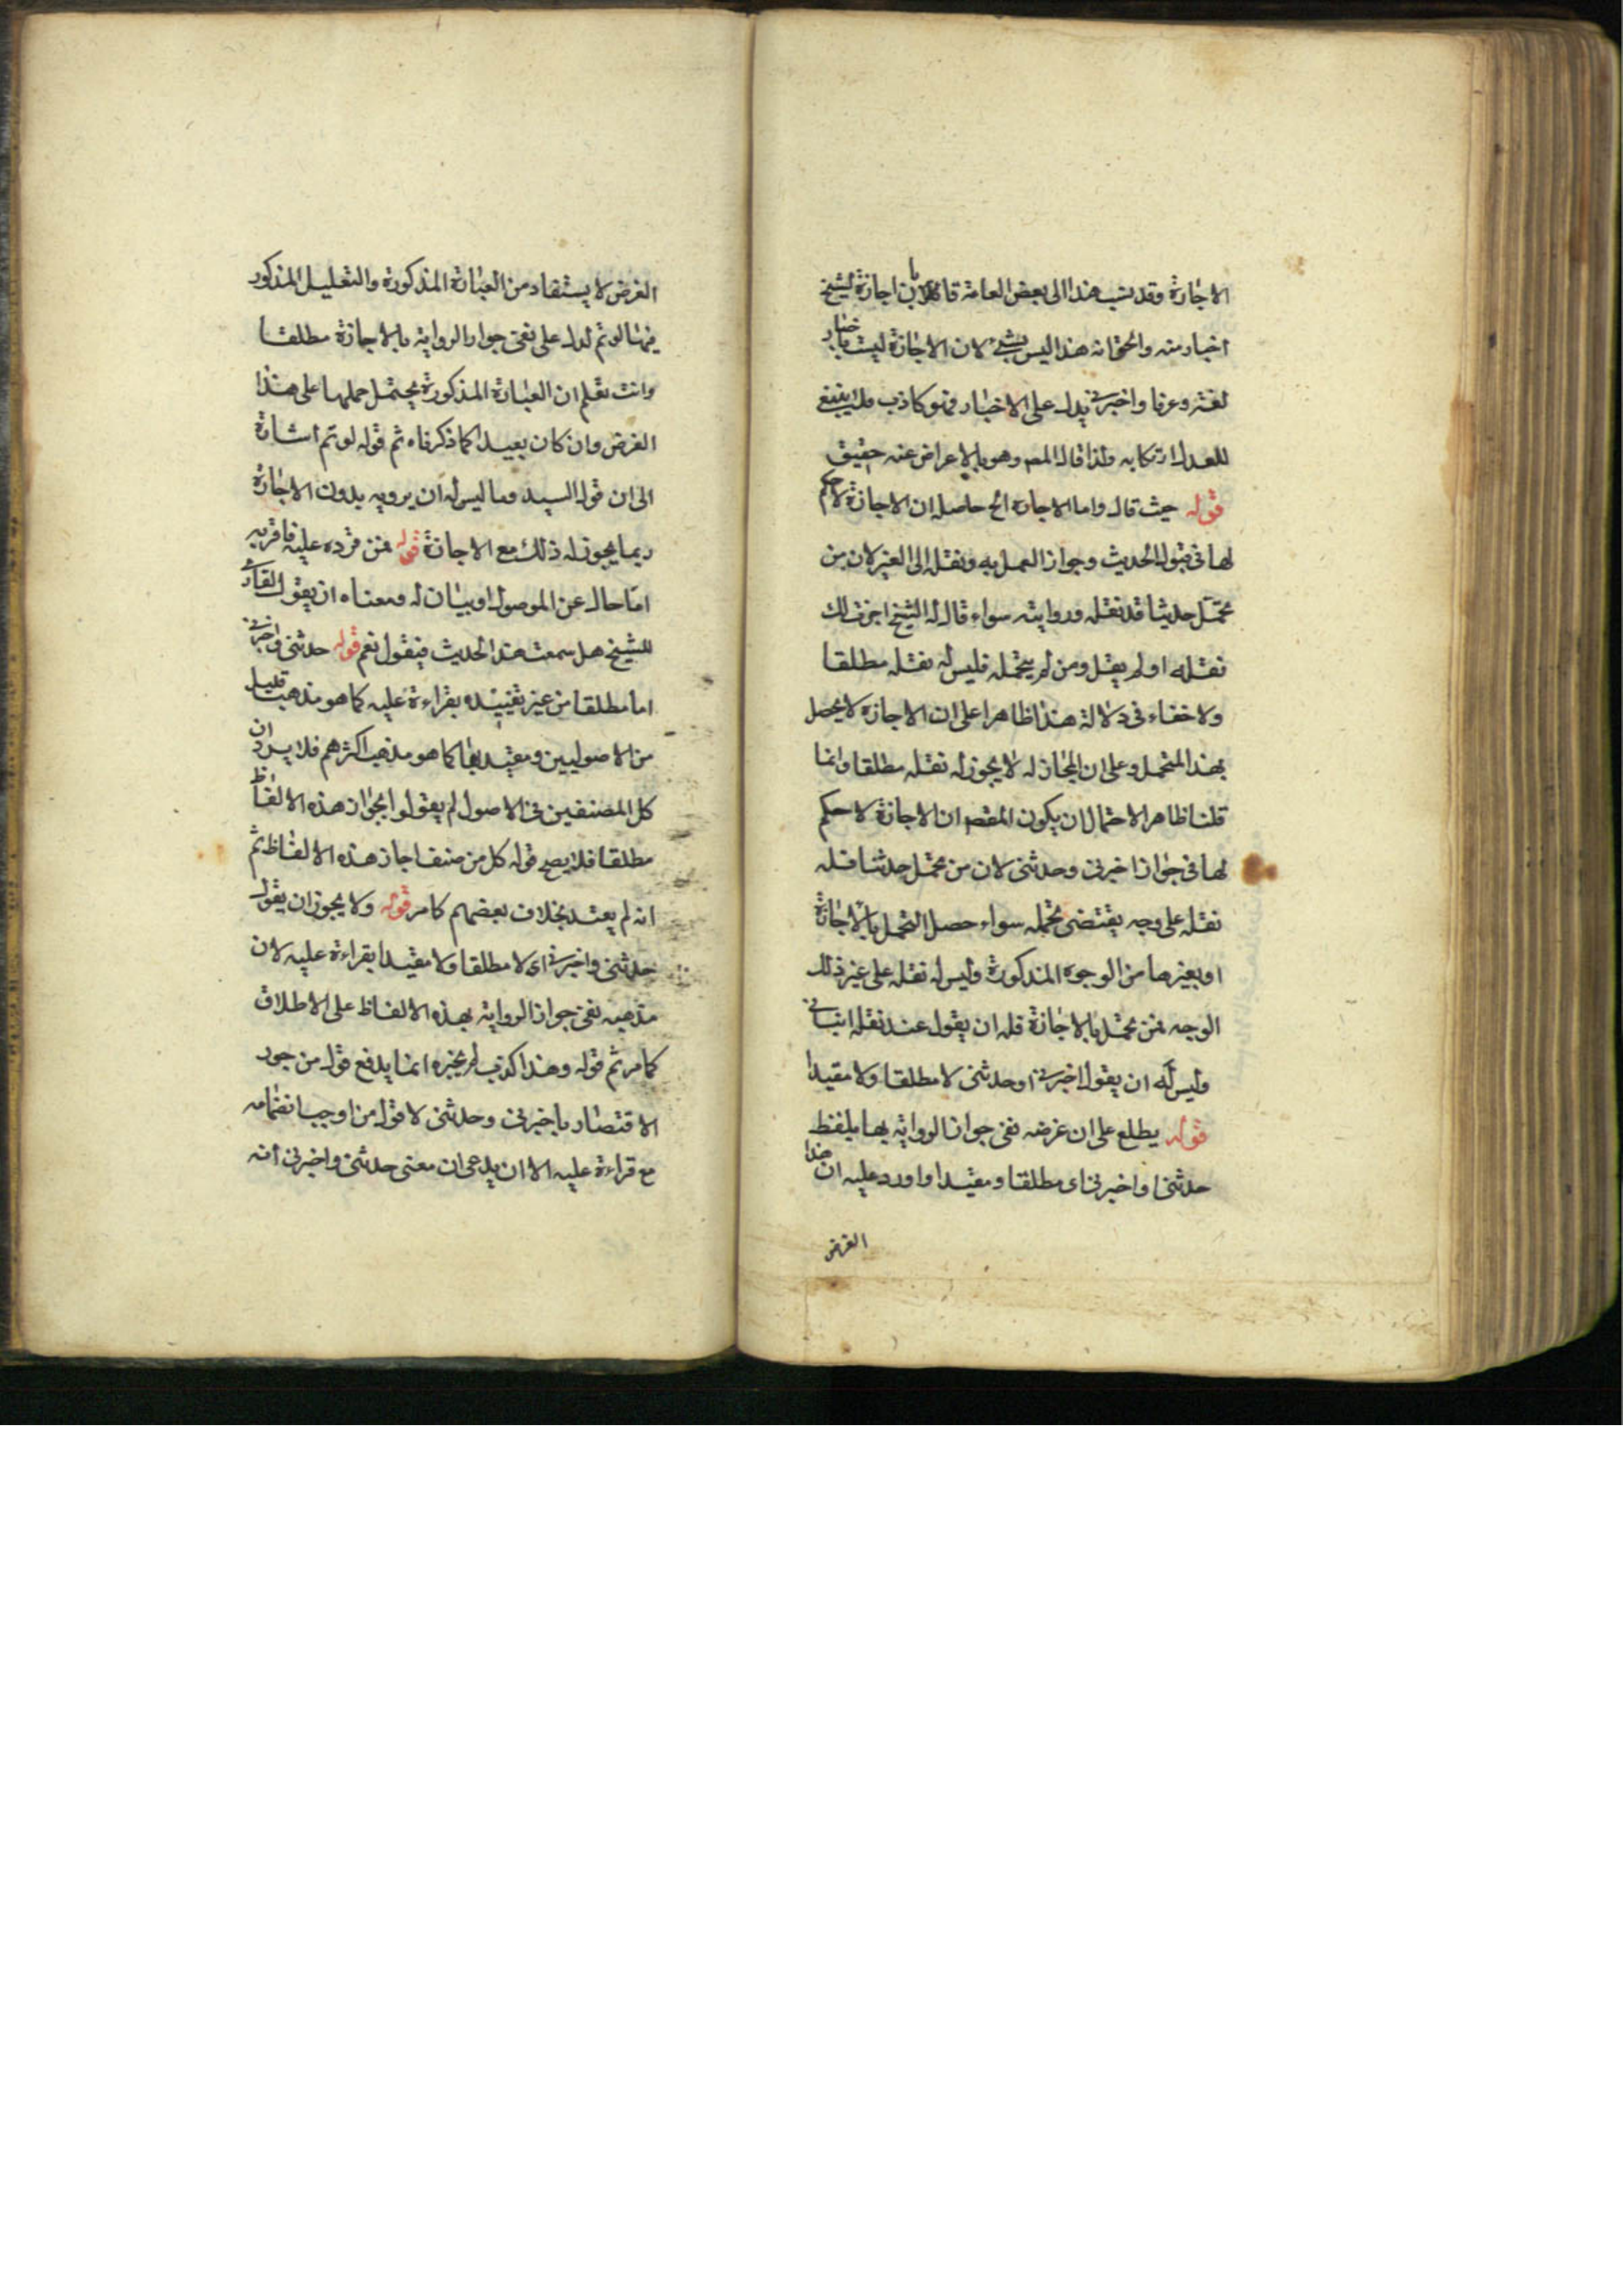 الاجازة وقد نسب هذا الى بعض العامة قائلا بان اجازة الشيخ
اخبار منه والحق انه هذا ليس بشئ لان الاجازة ليست باخبار
لغة وعرفا واخبرنى يدل على الاخبار فهو كاذب فلا ينبغ
للعدل ارتكابه ولذا قال المص وهو بالاعراض عنه حقيق
قوله حيث قال واما الاجازة الخ حاصله ان الاجازة لا حكم
لها فى قبول الحديث وجواز العمل به ونقله الى الغير لان من
تحمّل حديثا قد نقله وروايته سواء قال له الشيخ اجزت لك
نقله او لم يقل ومن لم يتحمله فليس له نقله مطلقا
ولا خفاء فى دلالة هذا ظاهرا على ان الاجازة لا يحصل
بهذا المتحمل وعلى ان المجاز له لا يجوز له نقله مطلقا وانما
قلنا ظاهرا لاحتمال ان يكون المقصم ان الاجازة لا حكم
لها فى جواز اخبرنى وحدثنى لان من تحمل حديثا فله
نقله على وجه يقتضى تحمله سواء حصل التحمل بالاجازة
او بغيرها من الوجوه المذكورة وليس له نقله على غير ذلك
الوجه فمن تحمل بالاجازة فله ان يقول عند نقله انبأنى
وليس له ان يقول اخبرنى او حدثنى لا مطلقا ولا مقيدا
قوله يطلع على ان غرضه نفى جواز الرواية بها بلفظ
حدثنى او اخبرنى اى مطلقا ومقيدا واورد عليه ان هذا
الغرض
الغرض لا يستفاد من العبارة المذكورة والتعليل المذكور
فيها لو تم لدل على نفى جواز الرواية بالاجازة مطلقا
وانت تعلم ان العبارة المذكورة يحتمل حملها على هذا
الغرض وان كان بعيدا كما ذكرناه ثم قوله لو تم اشارة
الى ان قول السيد وما ليس له ان يرويه بدون الاجازة
ربما يجوز له ذلك مع الاجازة قوله فمن قرده عليه فاقر به
اما حال عن الموصول او بيان له ومعناه ان يقول القارى
للشيخ هل سمعت هذا الحديث فيقول نعم قوله حدثنى واخبرنى
اما مطلقا من غير تقييده بقراءة عليه كما هو مذهب قليل
من الاصوليين ومقيد بها كما هو مذهب اكثرهم فلا يرد ان
كل المصنفين فى الاصول لم يقولوا بجواز هذه الالفاظ
مطلقا فلا يصح قوله كل من صنف اجاز هذه الالفاظ ثم
انه لم يعتد بخلاف بعضهم كامر قوله ولا يجوز ان يقول
حدثنى واخبرنى اى لا مطلقا ولا مقيدا بقراءة عليه لان
مذهبه نفى جواز الرواية بهذه الالفاظ على الاطلاق
كما مر ثم قوله وهذا كذب لم يخبره انما يدفع قول من جوز
الاقتصار باخبرنى وحدثنى لا قول من اوجب انضمامه
مع قراءة عليه الا ان يدعى ان معنى حدثنى واخبرنى انه